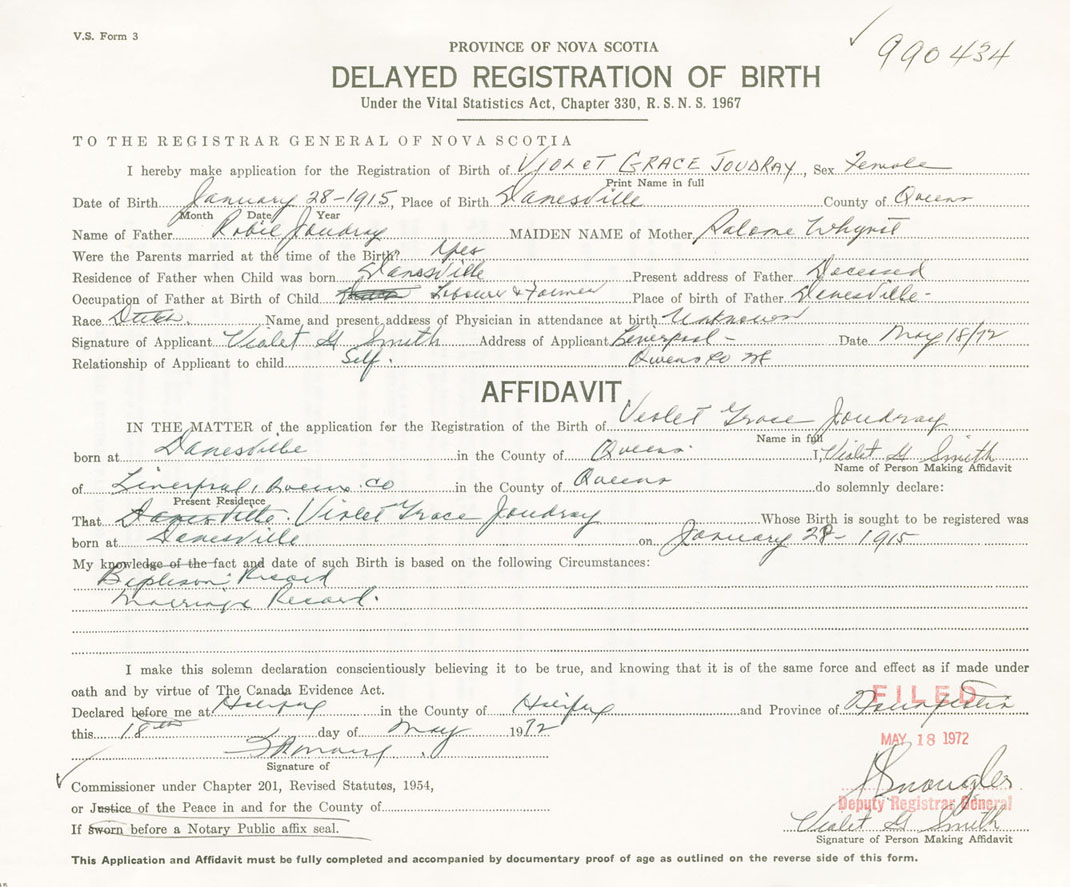 V.S. Form 3
990434
PROVINCE OF NOVA SCOTIA
DELAYED REGISTRATION OF BIRTH
Under the Vital Statistics Act, Chapter 330, R.S.N.S. 1967
TO THE REGISTRAR GENERAL OF NOVA SCOTIA
I hereby make application for the Registration of Birth of VIOLET GRACE JOUDRAY, Sex Female
Print Name in full
Date of Birth January 28-1915, Place of Birth Danesville County of Queens
Month Date Year
Name of Father Joudray MAIDEN NAME of Mother Salome Whynot
Were the Parents married at the time of the Birth? Yes
Residence of Father when Child was born Danesville Present address of Father Decesed
Occupation of Father at Birth of Child Labourer & Farmer Place of birth of Father Danesville-
Race Dutch. Name and present address of Physician in attendance at birth Unknown
Signature of Applicant Violet G Smith Address of Applicant Liverpool- Date May 18/72
Relationship of Applicant to child Self. Queens Co
AFFIDAVIT
IN THE MATTER of the application for the Registration of the Birth of Violet Grace Joudray
Name in full
born at Danesville in the County of Queens I, Violet G Smith
Name of Person Making Affidavit
of Liverpool, Queens Co in the County of Queens do solemnly declare:
Present Residence
That Danesville Violet Grace Joudray Whose Birth is sought to be registered was
born at Danesville on January 28-1915
My knowledge of the fact and date of such Birth is based on the following Circumstances:
Record
Marriage Record.
I make this solemn declaration conscientiously believing it to be true, and knowing that it is of the same force and effect as if made under
oath and by virtue of The Canada Evidence Act.
FILED
Declared before me at Halifax in the County of Halifax and Province of Nova Scotia
this 18th day of May 1972
MAY 18 1972
Signature of
Commissioner under Chapter 201, Revised Statutes, 1954,
or Justice of the Peace in and for the County of
Deputy Registrar General
If sworn before a Notary Public affix seal.
Violet G Smith
Signature of Person Making Affidavit
This Application and Affidavit must be fully completed and accompanied by documentary proof of age as outlined on the reverse side of this form.